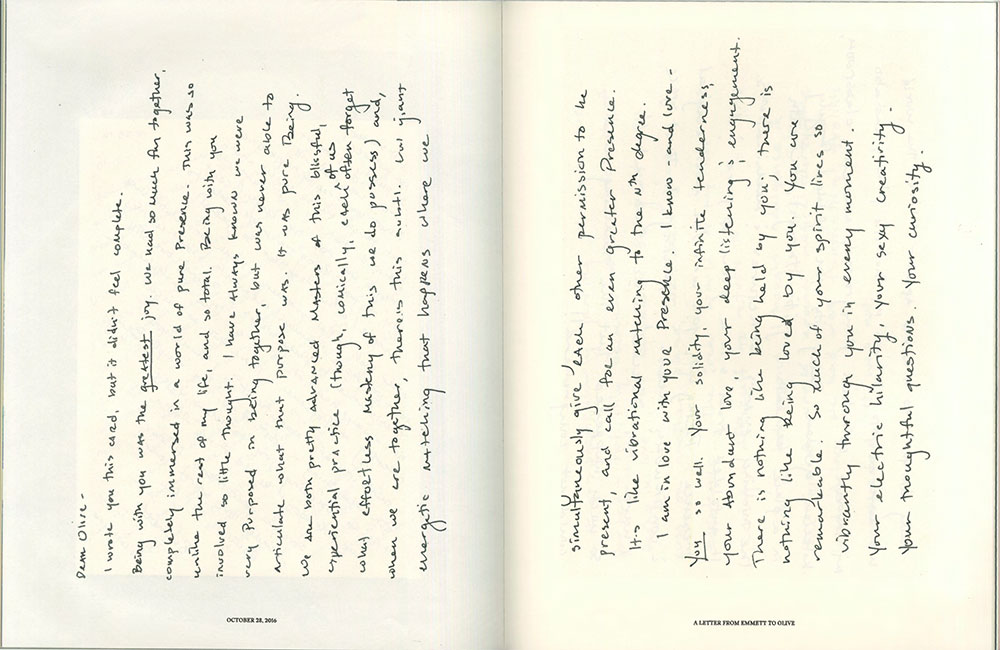 Dear Olive-
I wrote you this card, but it didn't feel complete.
Being with you was the greatest joy. We had so much fun together,
completely immersed in a world of pure Presence. This was so
unlike the rest of my life, and so total. Being with you
involved so little thought. I have always known we were
very Purposed in being together, but was never able to
articulate what that purpose was. It was pure Being.
We are both pretty advanced Masters of this blissful,
experiential practice (though, comically, each of us often forget
what effortless mastery of this we do possess) and,
when we are together, there is this subtle but giant
energetic matching that happens where we
OCTOBER 28, 2016
simultaneously give each other permission to be
present, and call for an even greater Presence.
It's like vibrational matching to the nth degree.
I am in love with your Presence. I know - and love -
you so well. Your solidity, your infinite tenderness,
your abundant love, your deep listening & engagement.
There is nothing like being held by you; there is
nothing like being loved by you. You are
remarkable. So much of your spirit lives so
vibrantly through you in every moment.
Your electric hilarity, your sexy creativity.
Your thoughtful questions. Your curiosity.
A LETTER FROM EMMETT TO OLIVE